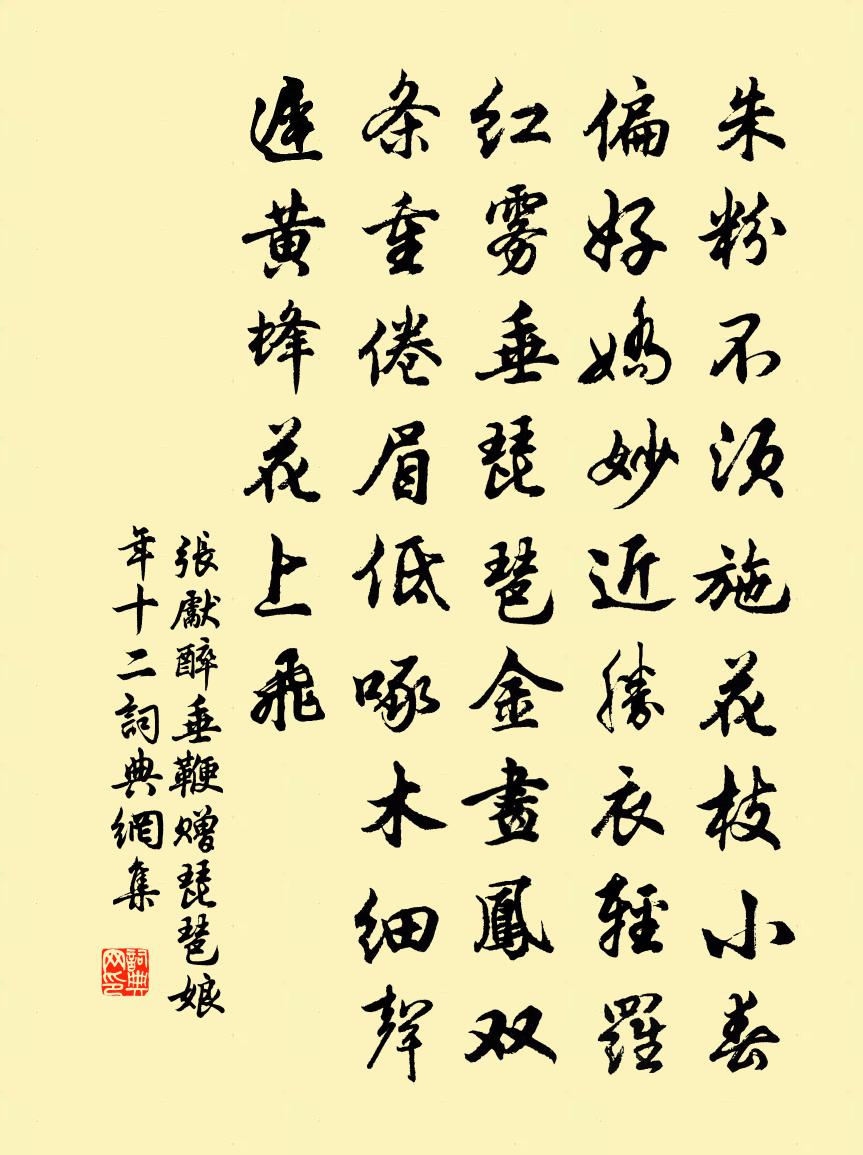 朱粉不须施花枝小春
偏好娇妙近勝衣輕羅
红雾垂琵琶金畫鳳双
条重倦眉低啄木细聲
遲黄蜂花上飛
張獻醉垂鞭赠琵琶娘
年十二詞典網集
詞典网印